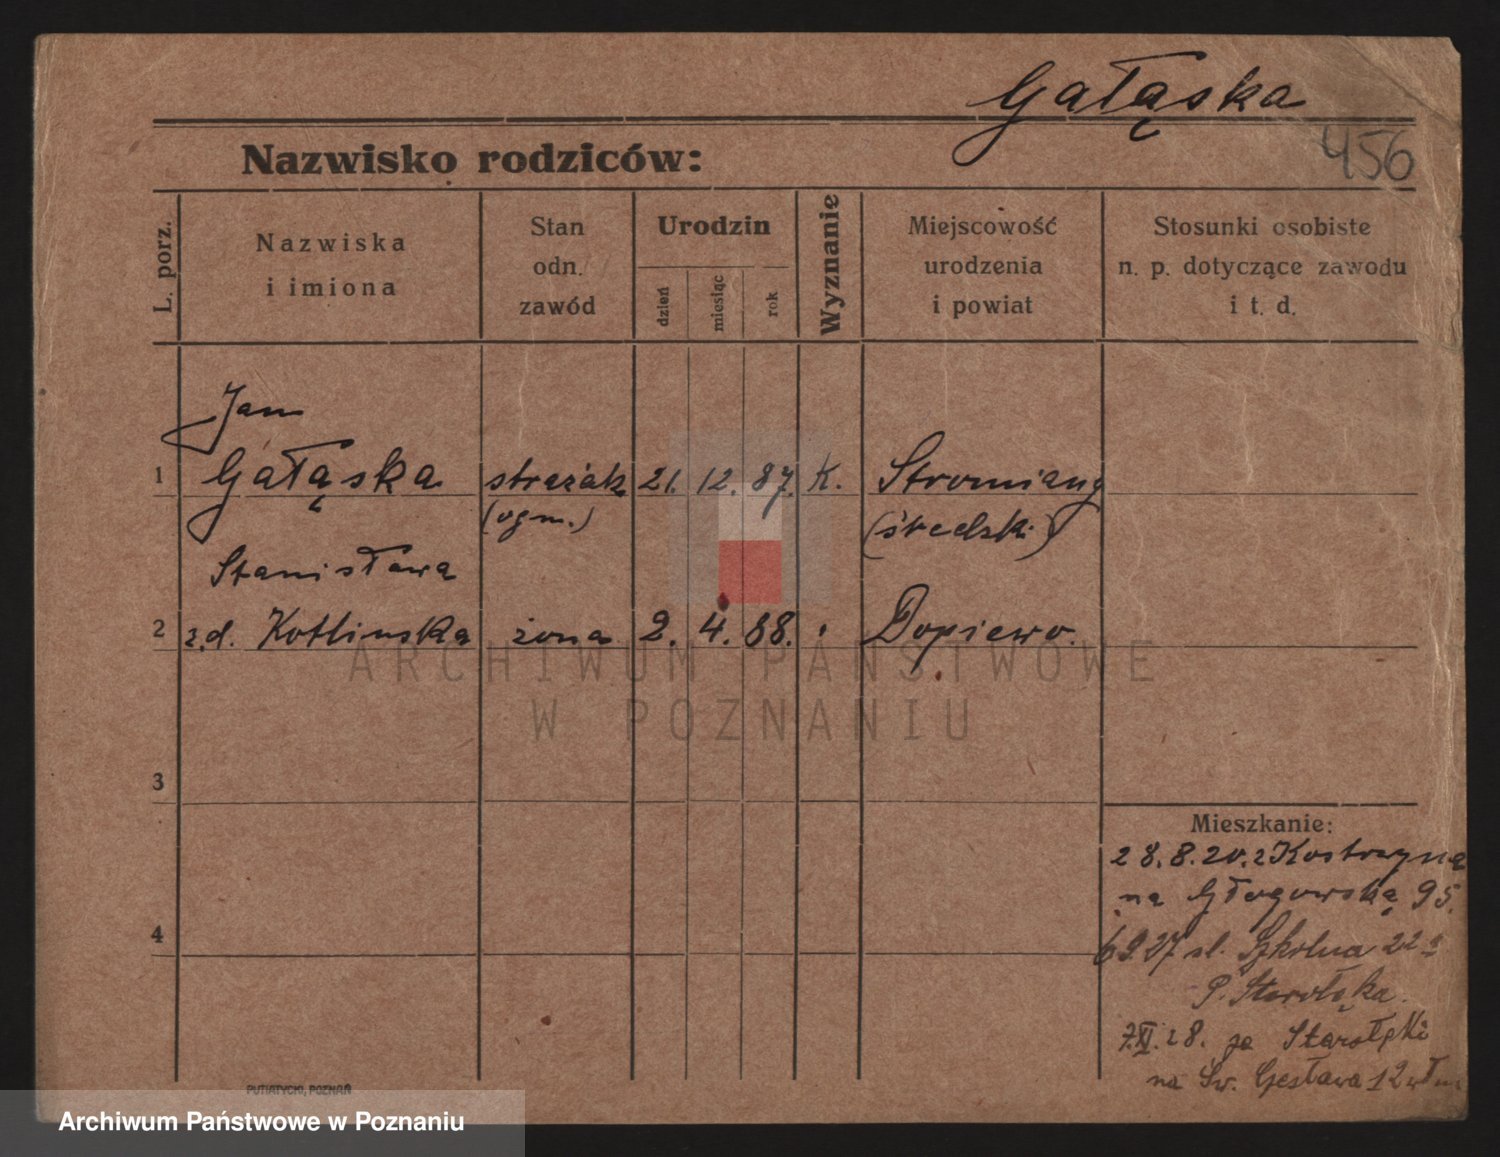 Gałąska
456
Nazwisko rodziców:
L. porz.
Nazwiska
i imiona
Stan
odn.
zawód
Urodzin
dzień
miesiąc
rok
Wyznanie
Miejscowość
urodzenia
i powiat
Stosunki osobiste
n. p. dotyczące zawodu
i t. d.
Jan
1 Gałąska strażak 21. 12. 87. K. Stromiany
(ogm.) (średzki)
Stanisława
2 z.d. Kotlinska żona 2. 4. 88. Dopiewo.
ARCHIWUM PAŃSTWOWE
W POZNANIU
3
Mieszkanie:
28.8.20. z Kostrzyna
na Głogowską 95.
4
6 9.27 ul. Szkolna 22
P. Starołęka.
7.XI.28. ze Starołęki
na Św. Czesława 12
PUTIATYCKI, POZNAŃ
Archiwum Państwowe w Poznaniu